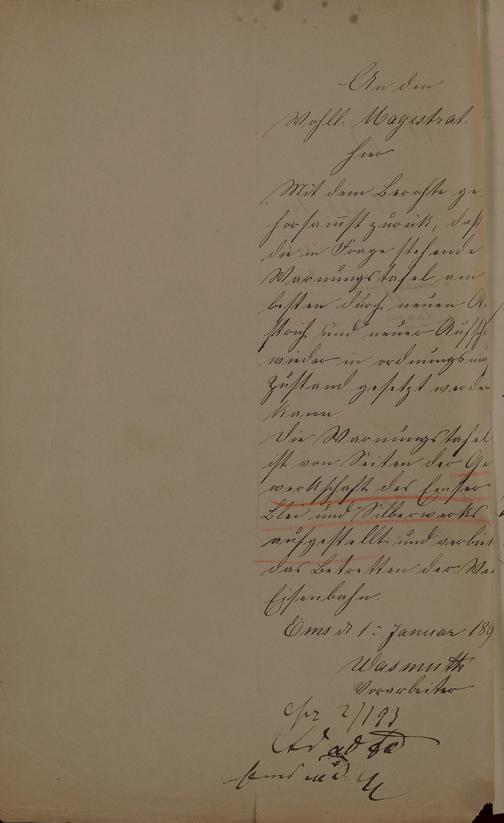 An den
Wohll. Magistrat.
hier
Mit dem Berichte ge-
horsamst zurück, daß
die in Frage stehende
Warnungstafel am
besten durch neuen An
strich und neuer Aufsch
wieder in ordnungsmä
Zustand gesetzt werden
kann
Die Warnungstafel
ist von Seiten der Ge
werkschaft des Emser
Blei und Silberwerks
aufgestellt und verbiet
das Betretten der
Eisenbahn.
Ems d 1. Januar 189
Wasmuth
Vorarbeiter
2/1 93